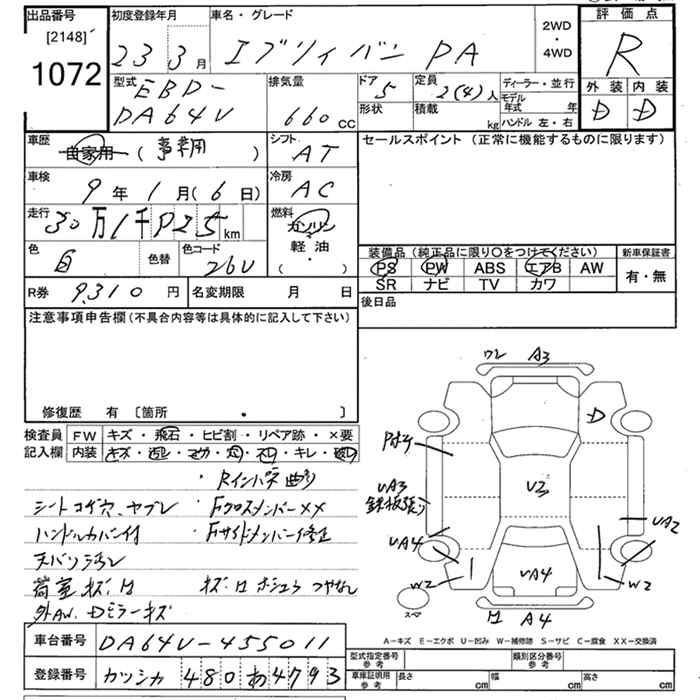 出品番号
[2148]
1072
初度登録年月
23 3月
車名・グレード
エブリィバン PA
2WD
・
4WD
評価点
R
外装 内装
D D
型式
EBD-
DA64V
排気量
660 CC
ドア
5
定員
2(4)人
ディーラー・並行
形状
積載
kg
モデル年式 年
ハンドル 左・右
車歴
自家用 (事業用)
シフト
AT
セールスポイント (正常に機能するものに限ります)
車検
9年 1月(6日)
冷房
AC
走行
30万1千P25km
燃料
ガソリン
軽油
( ・ )
色
白
色替
色コード
26U
装備品 (純正品に限り○をつけてください)
新車保証書
PS PW ABS エアB AW
SR ナビ TV カワ
有・無
R券 9,310円
名変期限 月 日
後日品
注意事項申告欄 (不具合内容等は具体的に記入して下さい)
修復歴 有 [箇所 ・ ]
検査員
記入欄
FW キズ・飛石・ヒビ割・リペア跡・×要
内装
・Rインパネ曲り
シートコゲ穴、ヤブレ ・Fクロスメンバーxx
ハンドルカバー付 ・Fサイドメンバー修正
荷室キズ・凹
外AW、Dミラーキズ
ワレ A3
D
UA3
鉄板張り
U3
UA2
UA4
UA4
W2
W2
スペア
凹 A4
A-キズ E-エクボ U-凹み W-補修跡 S-サビ C-腐食 XX-交換済
車台番号 DA64V-455011
登録番号 カツシカ 480 あ 4793
型式指定番号
参考
類別区分番号
参考
車庫証明用
参考
長さ cm
幅 cm
高さ cm